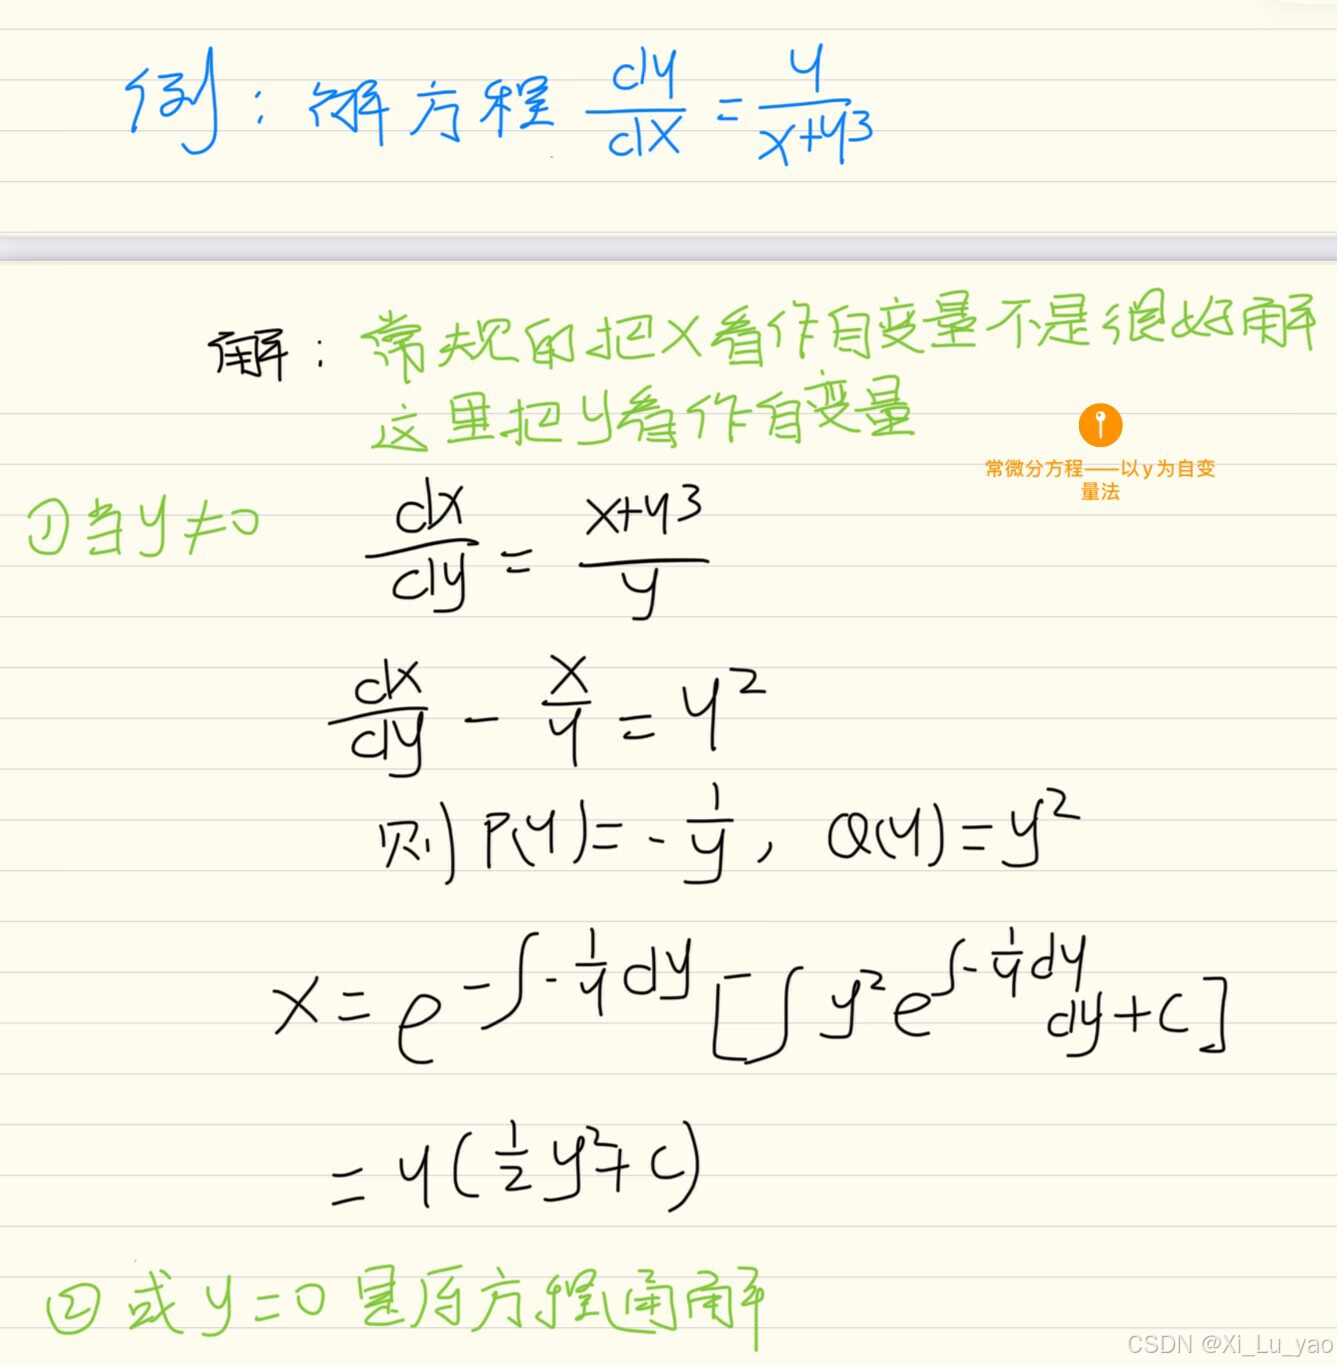 例：解方程 dy/dx = y/(x+y³)
解：常规的把x看作自变量不是很好解
这里把y看作自变量
常微分方程——以y为自变
量法
①当y≠0 dx/dy = (x+y³)/y
dx/dy - x/y = y²
则 P(y)= -1/y, Q(y)=y²
x= e^(-∫-1/y dy) [∫ y² e^(∫-1/y dy) dy+c]
= y(1/2 y²+c)
②或y=0是原方程通解
CSDN @Xi_Lu_yao